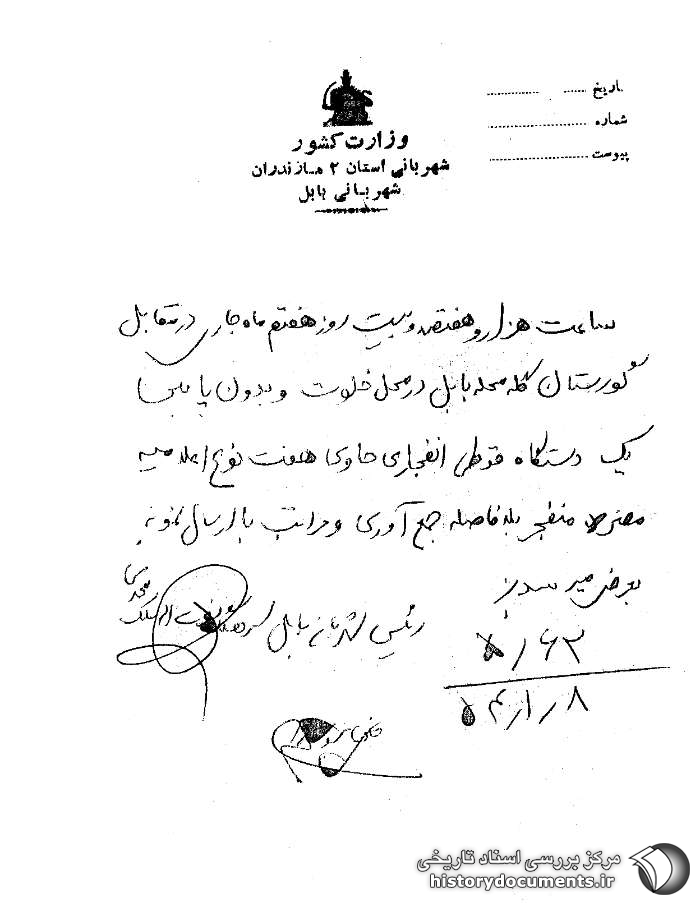 تاریخ
شماره
پیوست
وزارت کشور
شهربانی استان ۲ مازندران
شهربانی بابل
ساعت هزار و هفتصد و بیست روز هفتم ماه جاری در مقابل
گورستان کله محله بابل در محل خلوت و بدون پا
یک دستگاه قوطی انفجاری حاوی هفت نوع اعلامیه
مضره منفجر بلافاصله جمع آوری و مراتب با ارسال نمونه
بعرض میرسد
رئیس شهربانی بابل
۵/۶۳
۸ ر ۱ ر ۴۵
مرکز بررسی اسناد تاریخی
historydocuments.ir